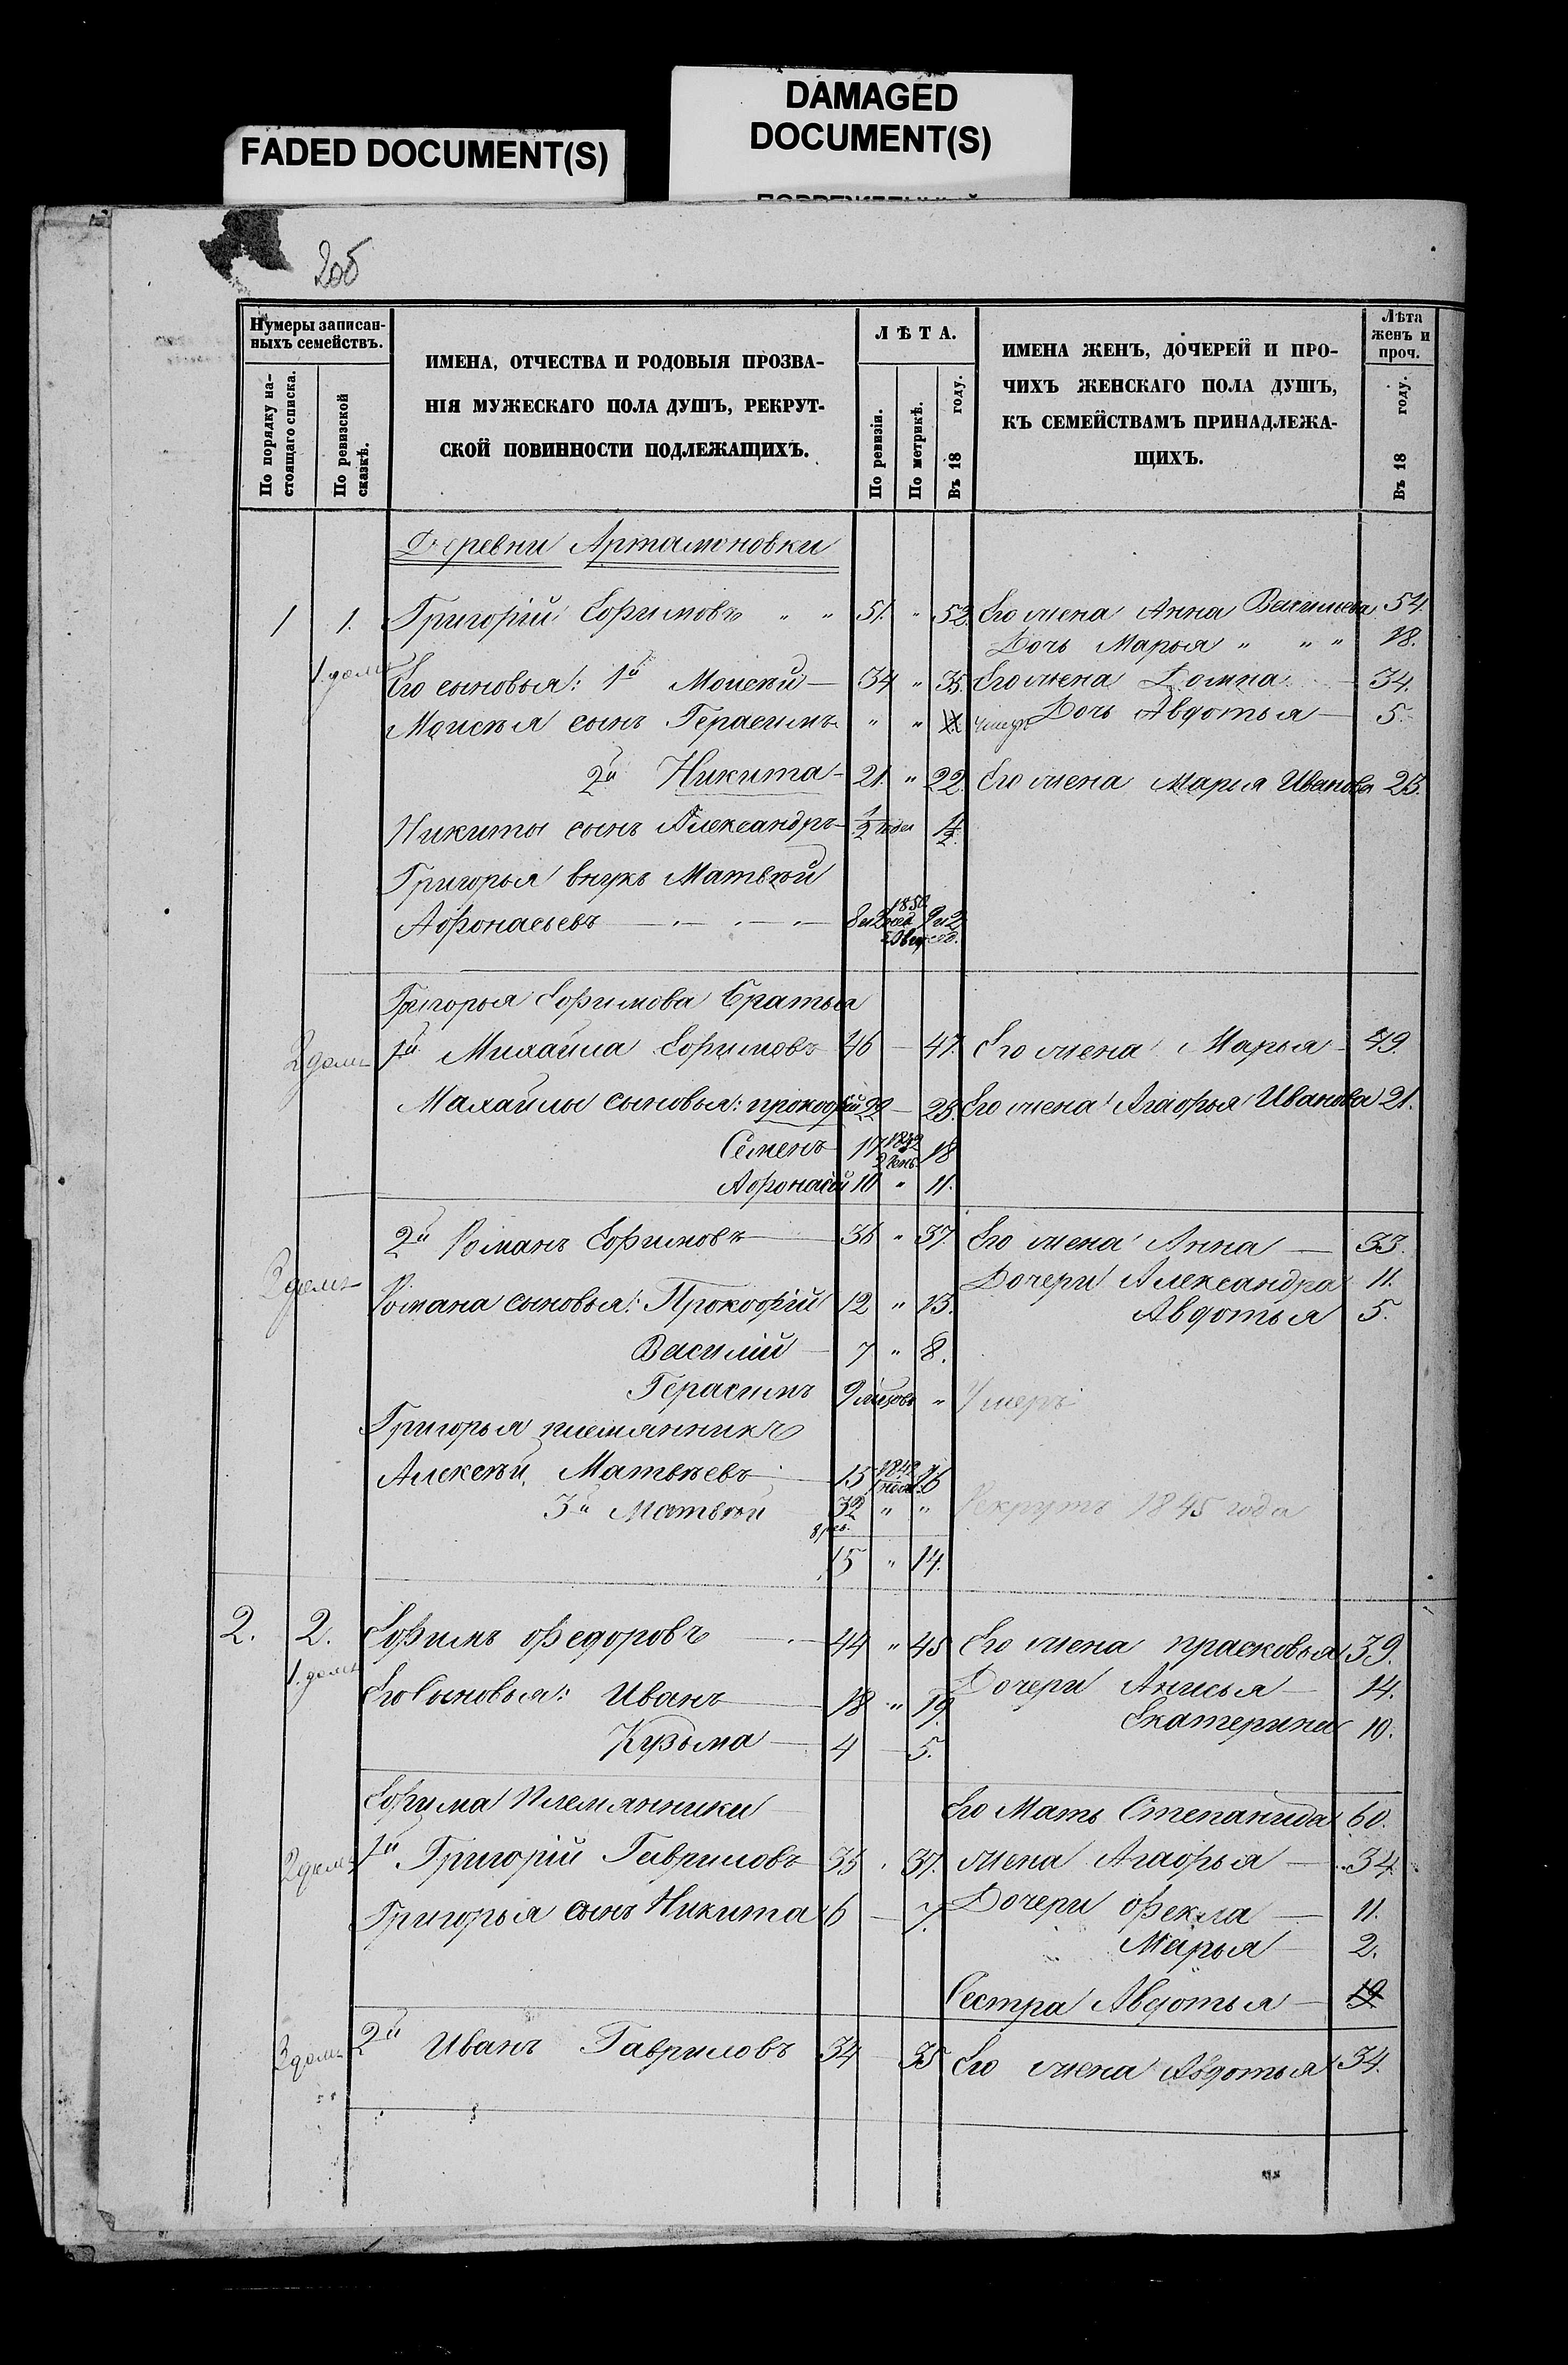 FADED DOCUMENT(S)
DAMAGED
DOCUMENT(S)
Нумеры записан-
ныхъ семействъ.
По порядку на-
стоящаго списка.
По ревизской
сказкѣ.
ИМЕНА, ОТЧЕСТВА И РОДОВЫЯ ПРОЗВА-
НІЯ МУЖЕСКАГО ПОЛА ДУШЪ, РЕКРУТ-
СКОЙ ПОВИННОСТИ ПОДЛЕЖАЩИХЪ.
ЛѢТА.
По ревизіи.
По метрикѣ.
Въ 18 году.
ИМЕНА ЖЕНЪ, ДОЧЕРЕЙ И ПРО-
ЧИХЪ ЖЕНСКАГО ПОЛА ДУШЪ,
КЪ СЕМЕЙСТВАМЪ ПРИНАДЛЕЖА-
ЩИХЪ.
Лѣта
женъ и
проч.
Въ 18 году.
Деревни Артамоновки
1 1. Григорій Ефимовъ " " 51. " 52. Его жена Анна 54.
Дочь Марья " " " 18.
1. домъ Его сыновья: 1й Моисѣй — 34 " 35. Его жена Домна — 34.
Моисѣя сынъ Герасимъ " " умеръ Дочь Авдотья — 5.
2й Никита — 21. " 22. Его жена Марья Иванова 23.
Никиты сынъ Александръ 1/2 года 1/2
Григорья внукъ Матвѣй
Афонасьевъ 1850
Григорья Ефимова Братья
2 домъ 1й Михайла Ефимовъ 46 — 47. Его жена Марья — 49.
Махайлы сыновья: прокофій 22 — 23. Его жена Агафья Иванова 21.
Семенъ 17 18
Афонасій 10 " 11.
2й Романъ Ефимовъ — 36 " 37. Его жена Анна — 33.
3 домъ Дочери Александра 11.
Романа сыновья: Прокофій 12 " 13. Авдотья 5.
Василій — 7 " 8.
Герасимъ 9 " Умеръ
Григорья племянникъ
Алексѣй Матвѣевъ 15 16
3й Матвѣй 32 " " Рекрутъ 1845 года
15 " 14.
2. 2. Ефимъ федоровъ — 44 " 45 Его жена прасковья 39.
1. домъ Дочери Анисья — 14.
Его Сыновья: Иванъ — 18 " 19. Екатерина 10.
Кузьма — 4 — 5.
Ефима Племянники Его Мать Степанида 60.
2 домъ 1й Григорій Гавриловъ 35 37. жена Агафья — 34.
Григорья сынъ Никита 6 — 7. Дочери фекла — 11.
Марья — 2.
Сестра Авдотья — 19
3 домъ 2й Иванъ Гавриловъ 34 — 35 Его жена Авдотья 34.